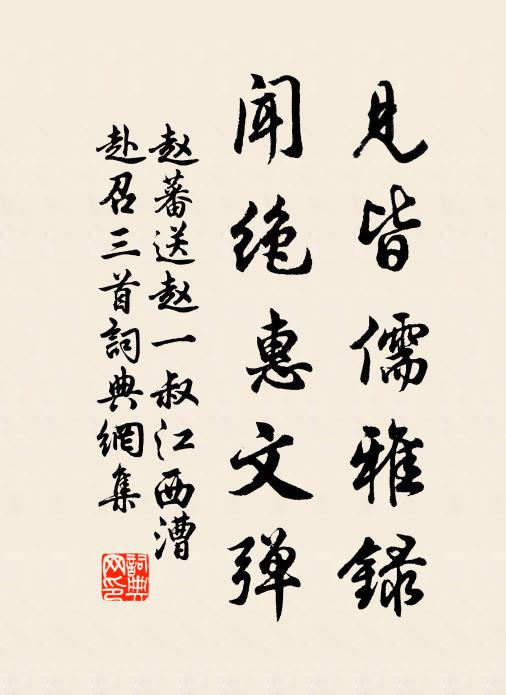 见皆儒雅録
闻绝惠文弹
赵蕃送赵一叔江西漕
赴召三首詞典網集
詞典网印